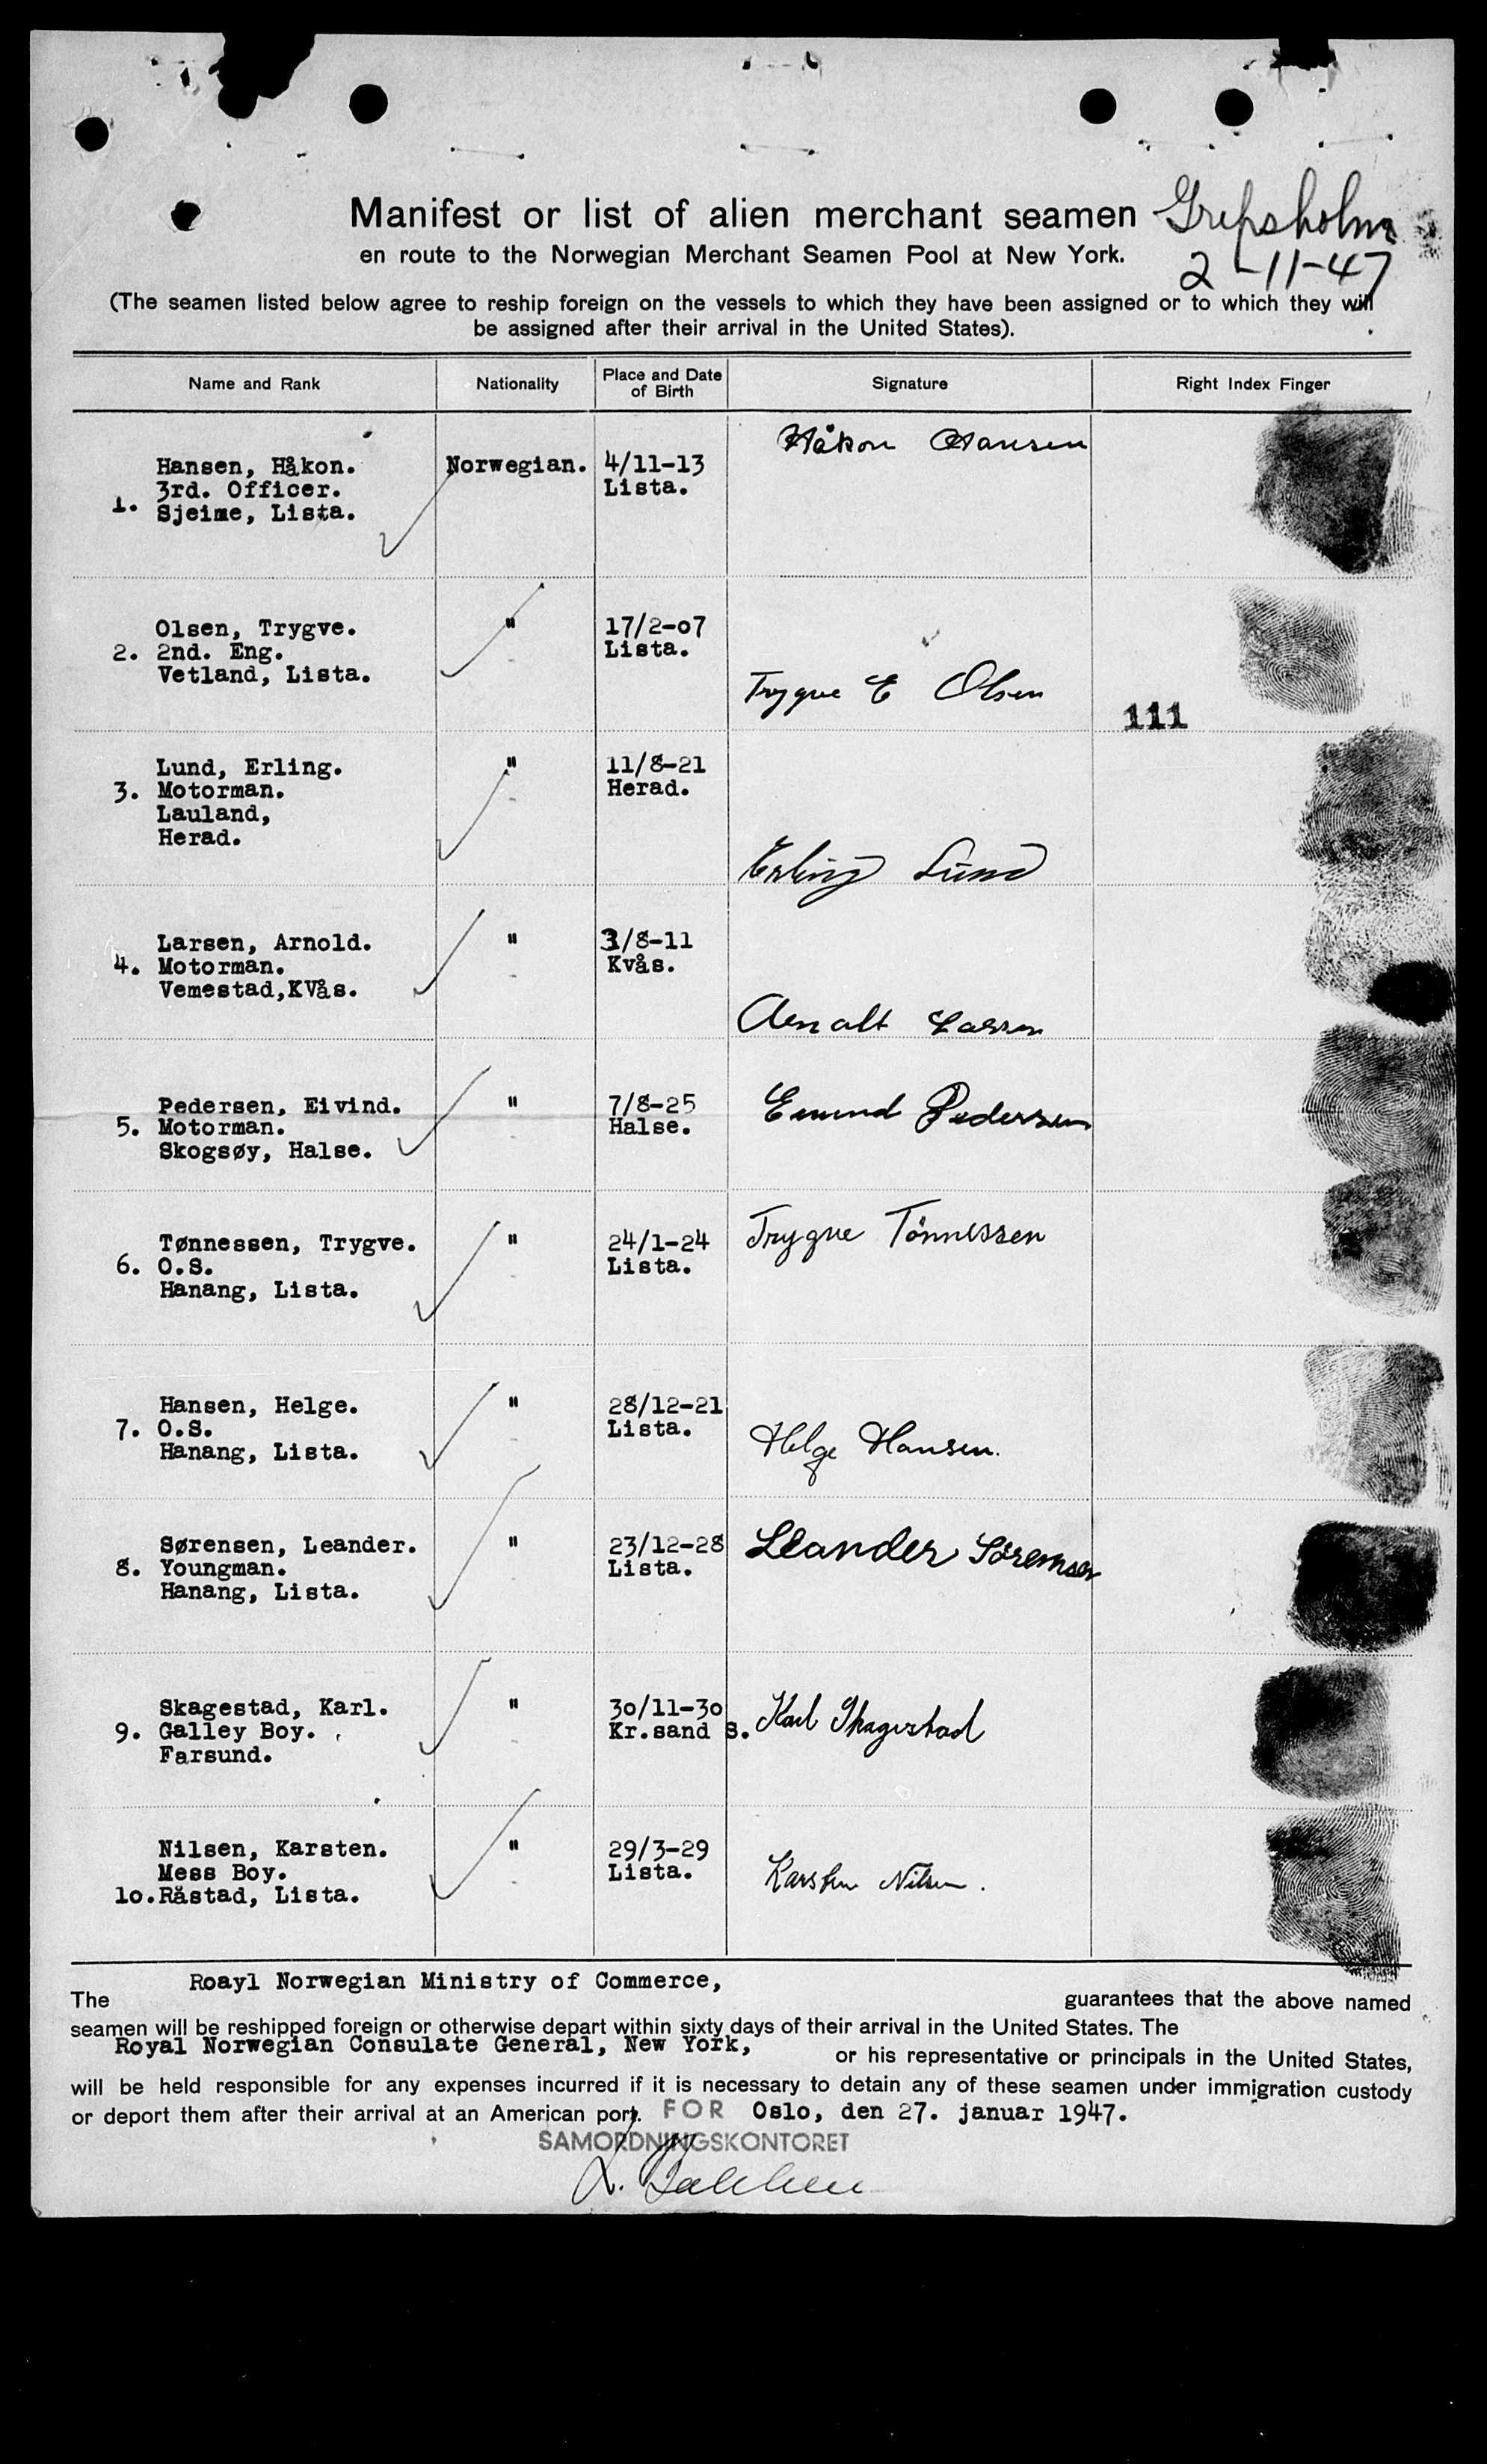 Manifest or list of alien merchant seamen Gripsholm
en route to the Norwegian Merchant Seamen Pool at New York. 2-11-47
(The seamen listed below agree to reship foreign on the vessels to which they have been assigned or to which they will
be assigned after their arrival in the United States).
Name and Rank Nationality Place and Date of Birth Signature Right Index Finger
Håkon Hansen
Hansen, Håkon. Norwegian. 4/11-13
3rd. Officer. Lista.
1. Sjeime, Lista.
Olsen, Trygve. " 17/2-07
2. 2nd. Eng. Lista.
Vetland, Lista.
Trygve E Olsen
111
Lund, Erling. " 11/8-21
3. Motorman. Herad.
Lauland,
Herad.
Erling Lund
Larsen, Arnold. " 3/8-11
4. Motorman. Kvås.
Vemestad,KVås.
Arnalt Larsen
Pedersen, Eivind. " 7/8-25 Eivind Pedersen
5. Motorman. Halse.
Skogsøy, Halse.
Tønnessen, Trygve. " 24/1-24 Trygve Tönnessen
6. O.S. Lista.
Hanang, Lista.
Hansen, Helge. " 28/12-21
7. O.S. Lista. Helge Hansen.
Hanang, Lista.
Sørensen, Leander. " 23/12-28 Leander Sørensen
8. Youngman. Lista.
Hanang, Lista.
Skagestad, Karl. " 30/11-30 Karl Skagestad
9. Galley Boy. Kr.sand S.
Farsund.
Nilsen, Karsten. " 29/3-29
Mess Boy. Lista. Karsten Nilsen.
10. Råstad, Lista.
Roayl Norwegian Ministry of Commerce,
The guarantees that the above named
seamen will be reshipped foreign or otherwise depart within sixty days of their arrival in the United States. The
Royal Norwegian Consulate General, New York, or his representative or principals in the United States,
will be held responsible for any expenses incurred if it is necessary to detain any of these seamen under immigration custody
or deport them after their arrival at an American port. FOR Oslo, den 27. januar 1947.
SAMORDNINGSKONTORET